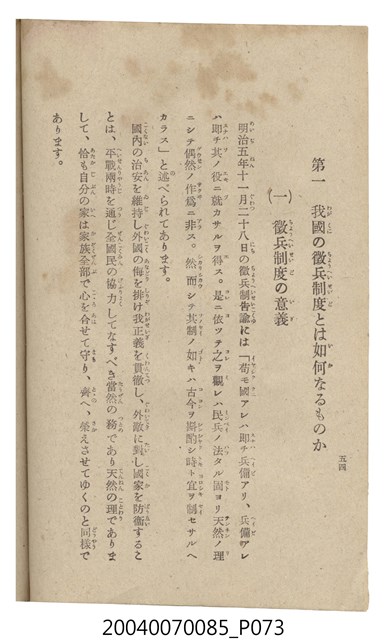 五四
第一　我國の徴兵制度とは如何なるものか
（一）　徴兵制度の意義
明治五年十一月二十八日の徴兵制告諭には「苟モ國アレハ即チ兵備アリ、兵備アレ
ハ即チ其ノ役ニ就カサルヲ得ス。是ニ依ツテ之ヲ觀レハ民兵ノ法タル固ヨリ天然ノ理
ニシテ偶然ノ作爲ニ非ス。然而シテ其制ノ如キハ古今ヲ斟酌シ時ト宜ヲ制セサルヘ
カラス」と述べられてあります。
國內の治安を維持し外國の侮を排け我正義を貫徹し、外敵に對し國家を防衞するこ
とは、平戰兩時を通じ全國民の協力してなすべき當然の務であり天然の理でありま
して、恰も自分の家は家族全部で心を合せて守り、齊へ、榮えさせてゆくのと同樣で
あります。
20040070085_P073